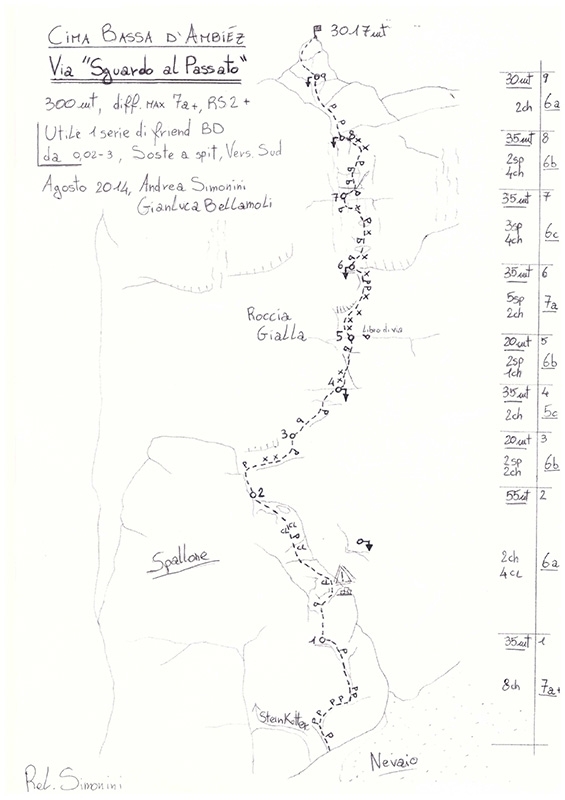 CIMA BASSA D'AMBIÉZ
VIA "SGUARDO AL PASSATO"
300 mt, diff. MAX 7a+, RS2+
UTILE 1 serie di friend BD
da 0,02-3, Soste a spit, Vers. Sud
Agosto 2014, Andrea Simonini
GianLuca Bellamoli
3017 mt
9
8
7
6
Roccia
Gialla
5
Libro di via
4
3
2
CL
CL
CL
Spallone
1
SteinKotter
Nevaio
Rel. Simonini
30 mt 9
2ch 6a
35 mt 8
2sp
4ch 6b
35 mt 7
3sp
4ch 6c
35 mt 6
5sp
2ch 7a
20 mt 5
2sp
1ch 6b
35 mt 4
2ch 5c
20 mt 3
2sp
2ch 6b
55 mt 2
2ch
4CL 6a
35 mt 1
8ch 7a+